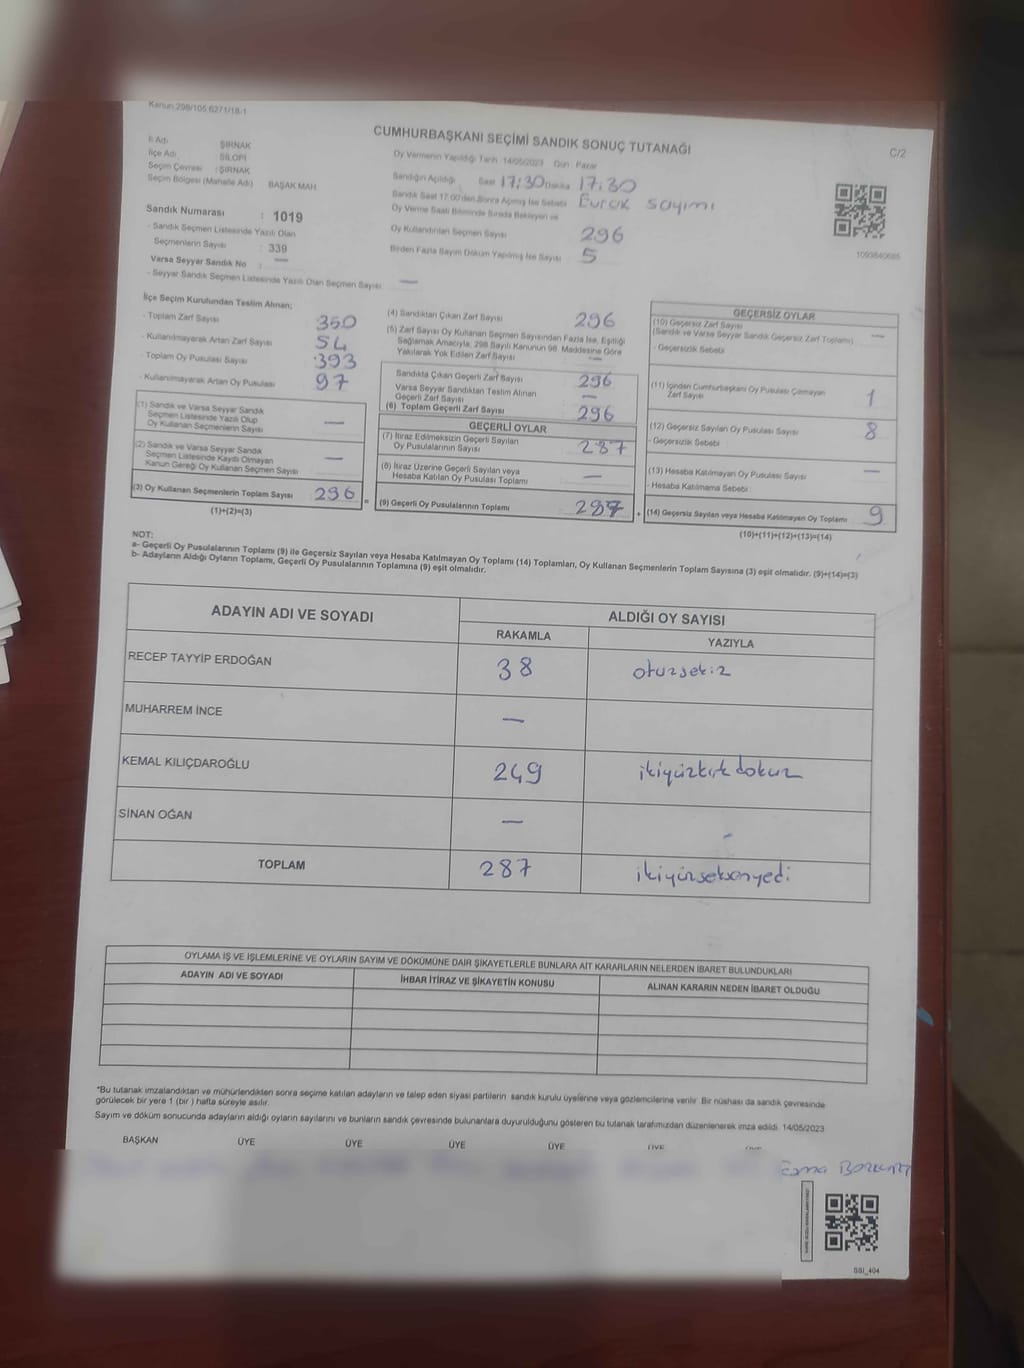 Kanun:298/105 6271/18-1
CUMHURBAŞKANI SEÇİMİ SANDIK SONUÇ TUTANAĞI
C/2
İl Adı : ŞIRNAK
İlçe Adı : SİLOPİ
Seçim Çevresi : ŞIRNAK
Seçim Bölgesi (Mahalle Adı) BAŞAK MAH.
Oy Vermenin Yapıldığı Tarih :14/05/2023 Gün : Pazar
Sandığın Açıldığı Saat 17:30 Dakika 17:30
Sandık Saat 17.00'den Sonra Açılmış İse Sebebi Evrak sayımı
Oy Verme Saati Bitiminde Sırada Bekleyen ve
Oy Kullandırılan Seçmen Sayısı 296
Birden Fazla Sayım Döküm Yapılmış İse Sayısı 5
Sandık Numarası : 1019
- Sandık Seçmen Listesinde Yazılı Olan
Seçmenlerin Sayısı : 339
Varsa Seyyar Sandık No : —
- Seyyar Sandık Seçmen Listesinde Yazılı Olan Seçmen Sayısı —
1093840685
İlçe Seçim Kurulundan Teslim Alınan:
- Toplam Zarf Sayısı 350
- Kullanılmayarak Artan Zarf Sayısı 54
- Toplam Oy Pusulası Sayısı 393
- Kullanılmayarak Artan Oy Pusulası 97
(1) Sandık ve Varsa Seyyar Sandık
Seçmen Listesinde Yazılı Olup
Oy Kullanan Seçmenlerin Sayısı —
(2) Sandık ve Varsa Seyyar Sandık
Seçmen Listesinde Kaydı Olmayan
Kanun Gereği Oy Kullanan Seçmen Sayısı —
(3) Oy Kullanan Seçmenlerin Toplam Sayısı 296 =
(1)+(2)=(3)
(4) Sandıktan Çıkan Zarf Sayısı 296
(5) Zarf Sayısı Oy Kullanan Seçmen Sayısından Fazla İse, Eşitliği
Sağlamak Amacıyla, 298 Sayılı Kanunun 98. Maddesine Göre
Yakılarak Yok Edilen Zarf Sayısı —
Sandıkta Çıkan Geçerli Zarf Sayısı 296
Varsa Seyyar Sandıktan Teslim Alınan
Geçerli Zarf Sayısı —
(6) Toplam Geçerli Zarf Sayısı 296
GEÇERLİ OYLAR
(7) İtiraz Edilmeksizin Geçerli Sayılan
Oy Pusulalarının Sayısı 287
(8) İtiraz Üzerine Geçerli Sayılan veya
Hesaba Katılan Oy Pusulası Toplamı —
(9) Geçerli Oy Pusulalarının Toplamı 287 +
GEÇERSİZ OYLAR
(10) Geçersiz Zarf Sayısı
(Sandık ve Varsa Seyyar Sandık Geçersiz Zarf Toplamı) —
- Geçersizlik Sebebi
(11) İçinden Cumhurbaşkanı Oy Pusulası Çıkmayan
Zarf Sayısı 1
(12) Geçersiz Sayılan Oy Pusulası Sayısı 8
- Geçersizlik Sebebi
(13) Hesaba Katılmayan Oy Pusulası Sayısı —
- Hesaba Katılmama Sebebi :
(14) Geçersiz Sayılan veya Hesaba Katılmayan Oy Toplamı 9
(10)+(11)+(12)+(13)=(14)
NOT:
a- Geçerli Oy Pusulalarının Toplamı (9) ile Geçersiz Sayılan veya Hesaba Katılmayan Oy Toplamı (14) Toplamları, Oy Kullanan Seçmenlerin Toplam Sayısına (3) eşit olmalıdır. (9)+(14)=(3)
b- Adayların Aldığı Oyların Toplamı, Geçerli Oy Pusulalarının Toplamına (9) eşit olmalıdır.
ADAYIN ADI VE SOYADI ALDIĞI OY SAYISI
RAKAMLA YAZIYLA
RECEP TAYYİP ERDOĞAN 38 otuzsekiz
MUHARREM İNCE —
KEMAL KILIÇDAROĞLU 249 ikiyüzkırkdokuz
SİNAN OĞAN —
TOPLAM 287 ikiyüzseksenyedi
OYLAMA İŞ VE İŞLEMLERİNE VE OYLARIN SAYIM VE DÖKÜMÜNE DAİR ŞİKAYETLERLE BUNLARA AİT KARARLARIN NELERDEN İBARET BULUNDUKLARI
ADAYIN ADI VE SOYADI İHBAR İTİRAZ VE ŞİKAYETİN KONUSU ALINAN KARARIN NEDEN İBARET OLDUĞU
*Bu tutanak imzalandıktan ve mühürlendikten sonra seçime katılan adayların ve talep eden siyasi partilerin sandık kurulu üyelerine veya gözlemcilerine verilir. Bir nüshası da sandık çevresinde
görülecek bir yere 1 (bir) hafta süreyle asılır.
Sayım ve döküm sonucunda adayların aldığı oyların sayılarını ve bunların sandık çevresinde bulunanlara duyurulduğunu gösteren bu tutanak tarafımızdan düzenlenerek imza edildi. 14/05/2023
BAŞKAN ÜYE ÜYE ÜYE ÜYE ÜYE
SSI_404